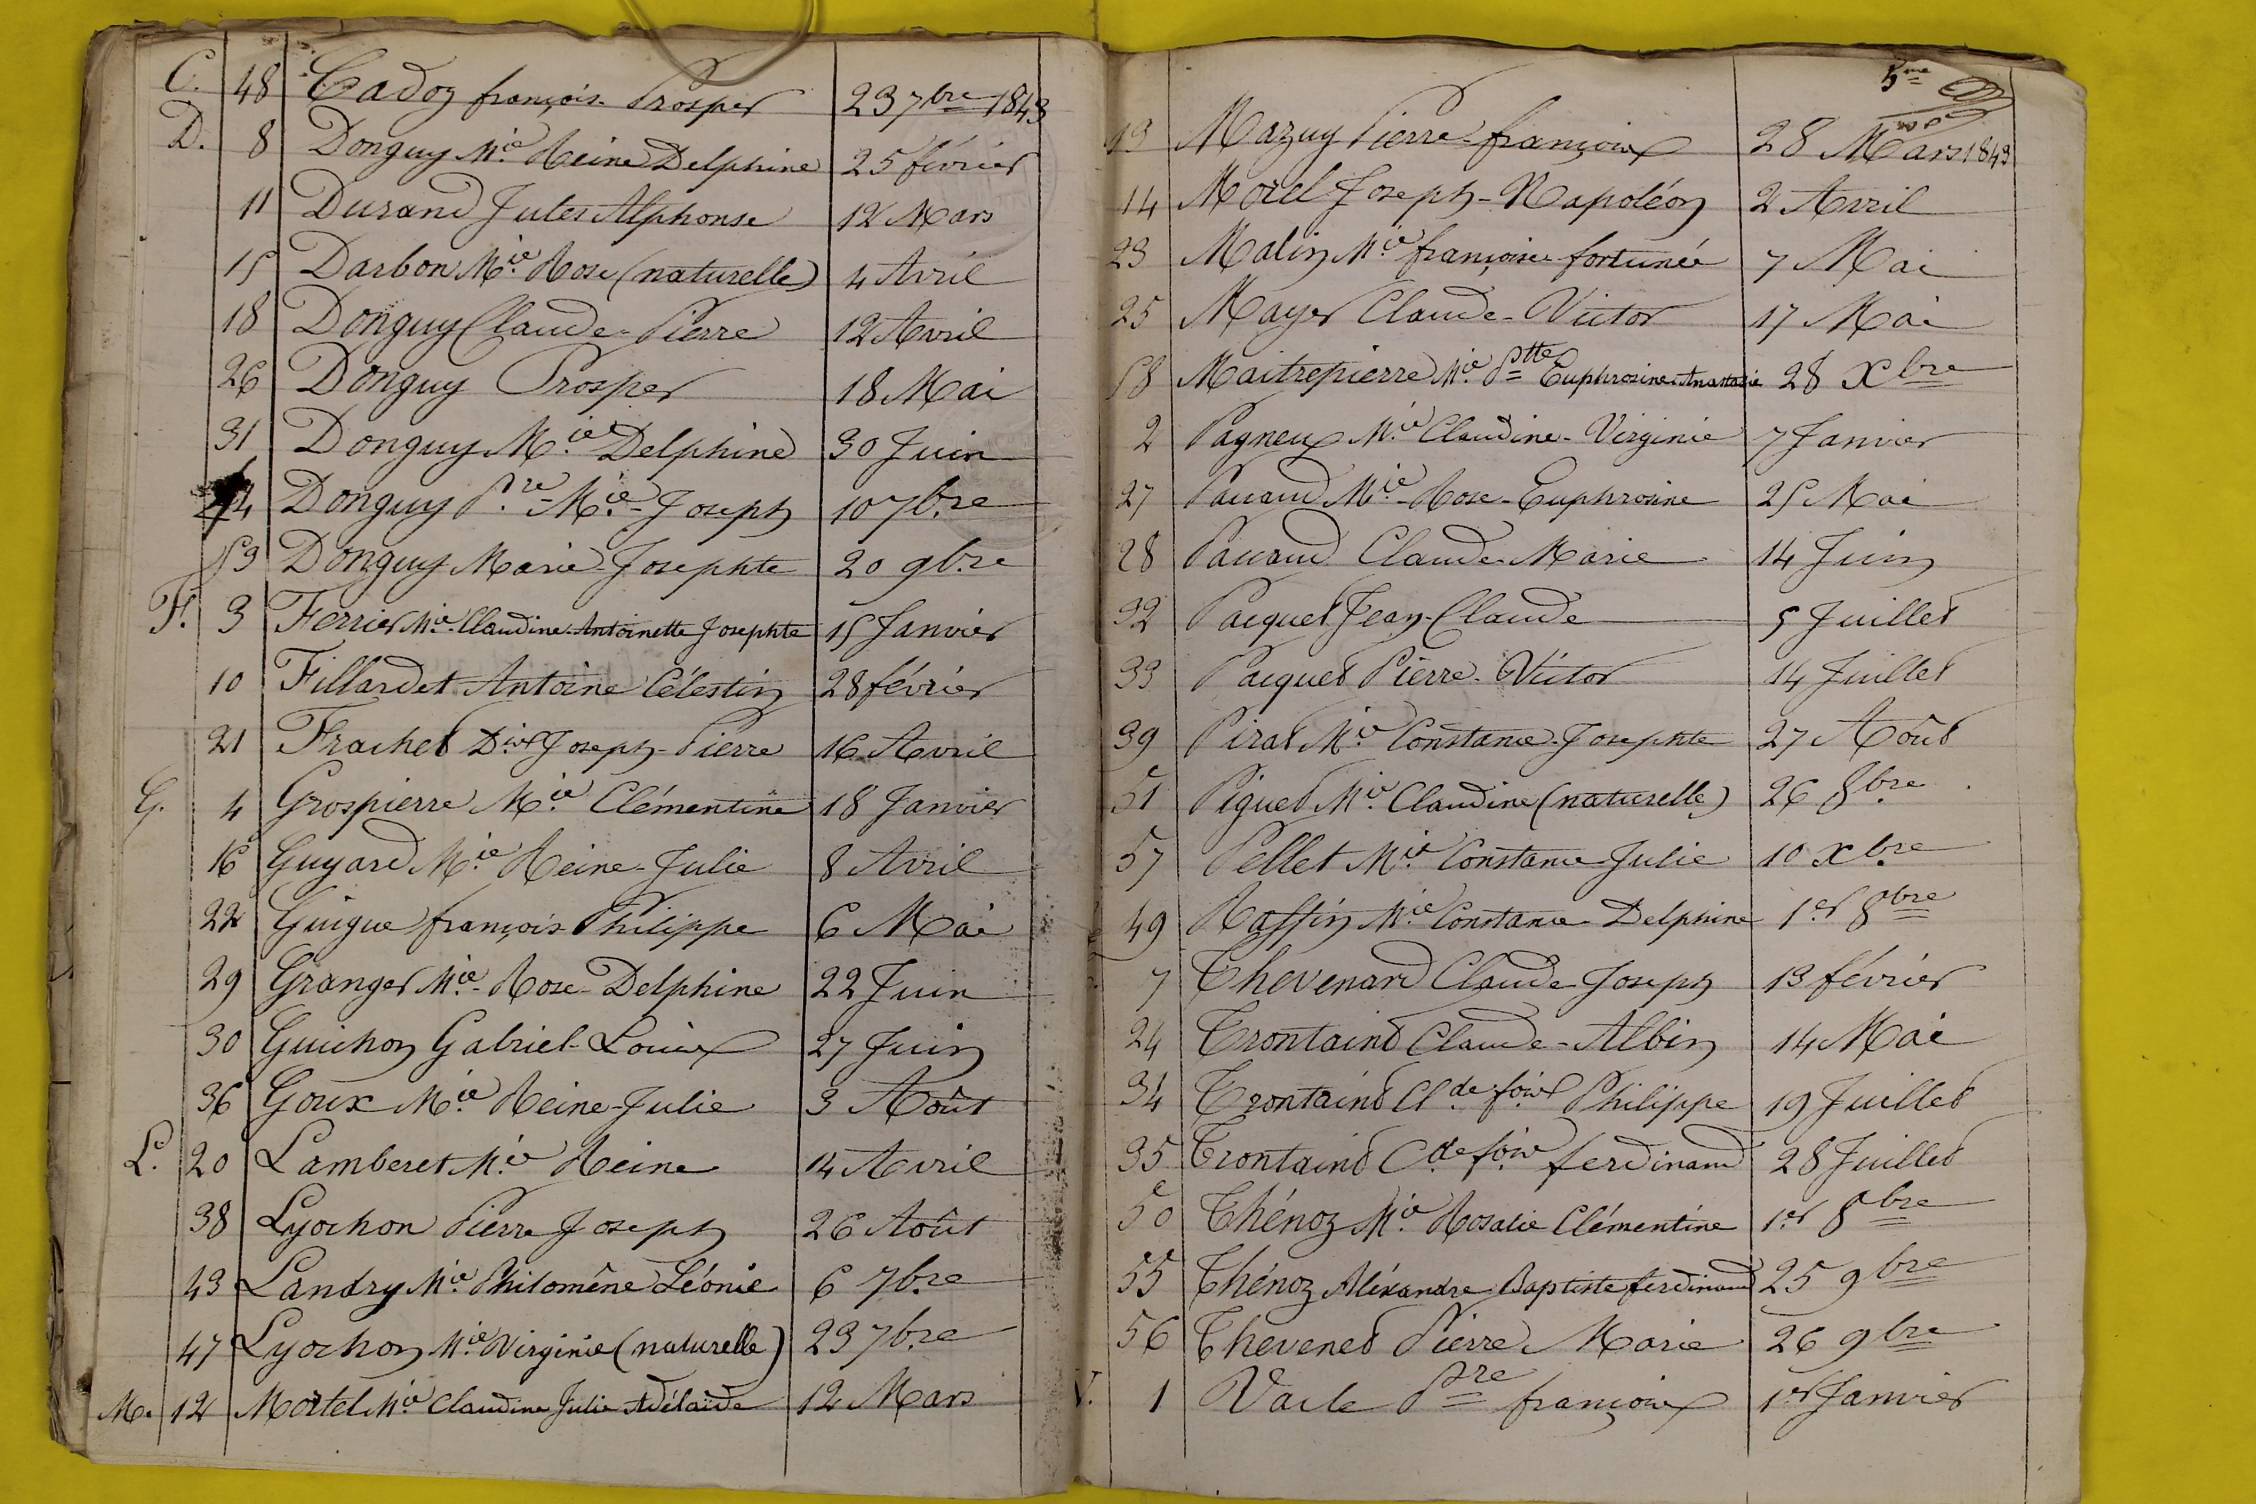 C. 48 Cadoz françois Prosper 23 7bre 1843
D. 8 Donguy Mie Reine Delphine 25 février
11 Durand Jules Alphonse 12 Mars
15 Darbon Mie Rose (naturelle) 4 Avril
18 Donguy Claude-Pierre 12 Avril
26 Donguy Prosper 18 Mai
31 Donguy Mie Delphine 30 Juin
Donguy Pre-Mie-Joseph 10 7bre
53 Donguy Marie Josephte 20 9bre
F. 3 Ferrier Mie Claudine-Antoinette Josephte 15 Janvier
10 Fillardet Antoine Célestin 28 février
21 Frachet Joseph-Pierre 16 Avril
G. 4 Grospierre Mie Clémentine 18 Janvier
16 Guyard Mie Reine-Julie 8 Avril
22 Guigue françois Philippe 6 Mai
29 Granger Mie-Rose-Delphine 22 Juin
30 Guichon Gabriel-Louis 27 Juin
36 Goux Mie Reine-Julie 3 Août
L. 20 Lamberet Mie Reine 14 Avril
38 Lyochon Pierre Joseph 26 Août
43 Landry Mie Philomène Léonie 6 7bre
47 Lyochon Mie Virginie (naturelle) 23 7bre
M. 12 Mortel Mie Claudine Julie Adélaïde 12 Mars
5me
13 Mazuy Pierre-françois 28 Mars 1843
14 Morel Joseph-Napoléon 2 Avril
23 Malin Mie françoise fortunée 7 Mai
25 Mayer Claude-Victor 17 Mai
58 Maitrepierre Mie Ptte Euphrosine Anastasie 28 Xbre
2 Pagneux Mie Claudine-Virginie 7 Janvier
27 Pauaud Mie-Rose-Euphrosine 25 Mai
28 Pauaud Claude-Marie 14 Juin
32 Pacquet Jean-Claude 5 Juillet
33 Pacquet Pierre-Victor 14 Juillet
39 Pirat Mie Constance-Josephte 27 Août
51 Piguet Mie Claudine (naturelle) 26 8bre
57 Pellet Mie Constance Julie 10 Xbre
49 Raffin Mie Constance-Delphine 1er 8bre
7 Thevenard Claude-Joseph 13 février
24 Trontaint Claude-Albin 14 Mai
34 Trontaint Clde fois Philippe 19 Juillet
35 Trontaint Cde fois ferdinand 28 Juillet
50 Thénoz Mie Rosalie Clémentine 1er 8bre
55 Thénoz Aléxandre Baptiste ferdinand 25 9bre
56 Thevenet Pierre Marie 26 9bre
V. 1 Varle Pre françois 1er Janvier